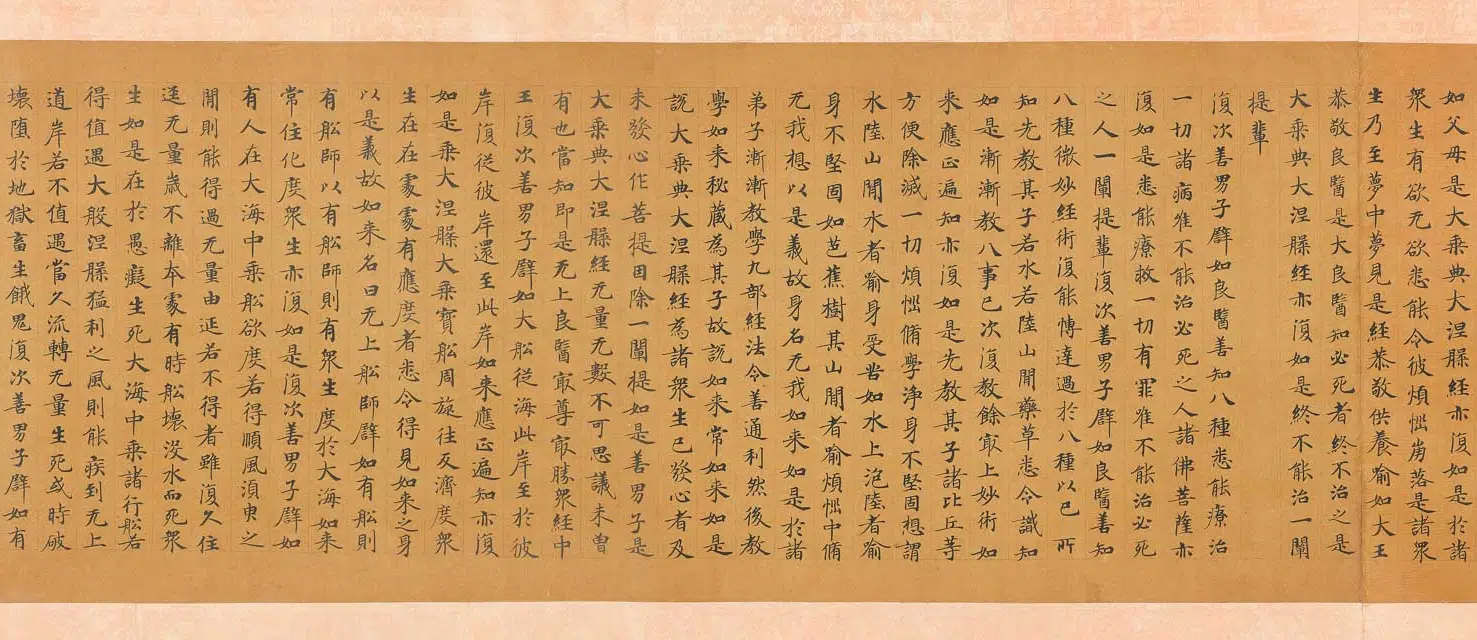 如父母是大乘典大涅槃經亦復如是於諸
衆生有欲无欲悉能令彼煩惱崩落是諸衆
生乃至夢中夢見是經恭敬供養喻如大王
恭敬良醫是大良醫知必死者終不治之是
大乘典大涅槃經亦復如是終不能治一闡
提輩
復次善男子譬如良醫善知八種悉能療治
一切諸病唯不能治必死之人諸佛菩薩亦
復如是悉能療救一切有罪唯不能治必死
之人一闡提輩復次善男子譬如良醫善知
八種微妙經術復能博達過於八種以已所
知先教其子若水若陸山閒藥草悉令識知
如是漸漸教八事已次復教餘㝡上妙術如
来應正遍知亦復如是先教其子諸比丘等
方便除滅一切煩惱脩學淨身不堅固想謂
水陸山閒水者喻身受苦如水上泡陸者喻
身不堅固如芭蕉樹其山閒者喻煩惱中脩
无我想以是義故身名无我如来如是於諸
弟子漸漸教學九部經法令善通利然後教
學如来秘藏為其子故說如来常如来如是
說大乘典大涅槃經為諸衆生已發心者及
未發心作菩提因除一闡提如是善男子是
大乘典大涅槃經无量无數不可思議未曽
有也當知即是无上良醫㝡尊㝡勝衆經中
王復次善男子譬如大舩從海此岸至於彼
岸復從彼岸還至此岸如来應正遍知亦復
如是乘大涅槃大乘寳舩周旋往反濟度衆
生在在處處有應度者悉令得見如来之身
以是義故如来名曰无上舩師譬如有舩則
有舩師以有舩師則有衆生度於大海如来
常住化度衆生亦復如是復次善男子譬如
有人在大海中乘舩欲度若得順風湏臾之
閒則能得過无量由延若不得者雖復久住
逕无量歲不離本處有時舩壞沒水而死衆
生如是在於愚癡生死大海中乘諸行舩若
得值遇大般涅槃猛利之風則能疾到无上
道岸若不值遇當久流轉无量生死或時破
壞墮於地獄畜生餓鬼復次善男子譬如有